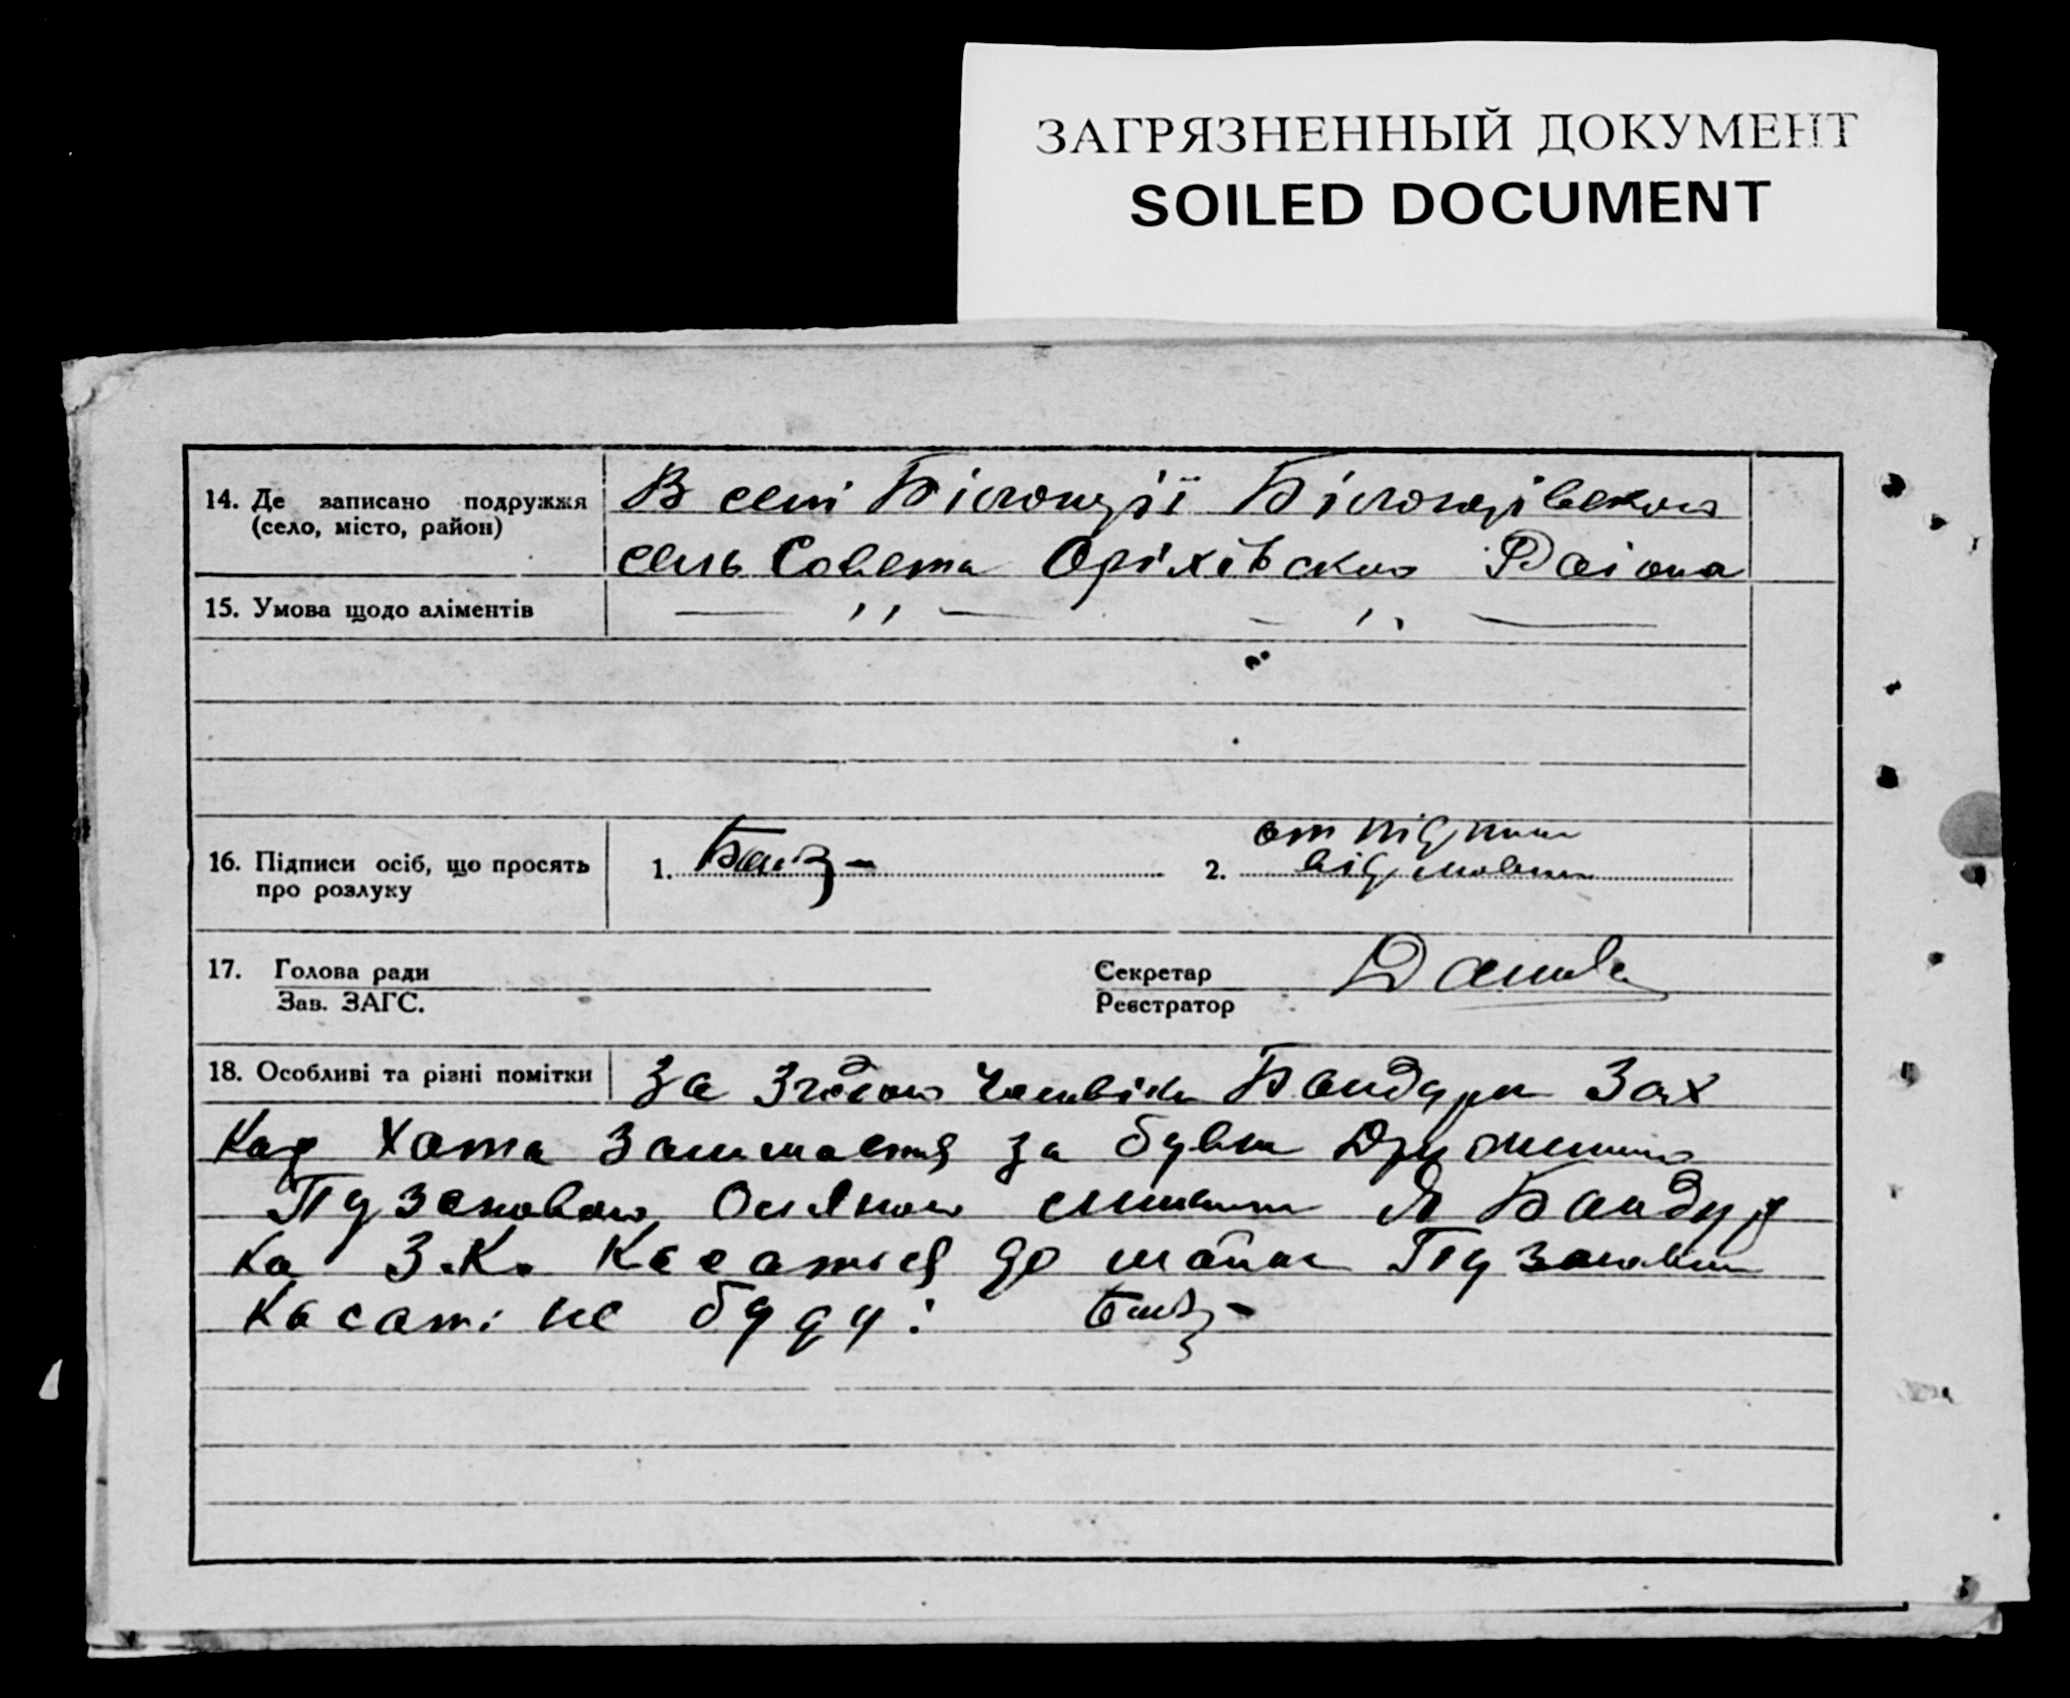 ЗАГРЯЗНЕННЫЙ ДОКУМЕНТ
SOILED DOCUMENT
14. Де записано подружжя (село, місто, район)
В селі Білогірї Білогірівсково
сель Совета Оріхівсково Раіона
15. Умова щодо аліментів
— ,, — — ,, —
16. Підписи осіб, що просять про розлуку
1. Банд-
2. от підписи відмовился
17. Голова ради
Зав. ЗАГС.
Секретар
Реєстратор
18. Особливі та різні помітки
За Згодою Чоловіка Бандури Зах
Кар Хата Залишается за бувш Дружиною
Пузановою Я Бандур
ка З.К. Касатися до хати Пузановой
Касаті не буду: